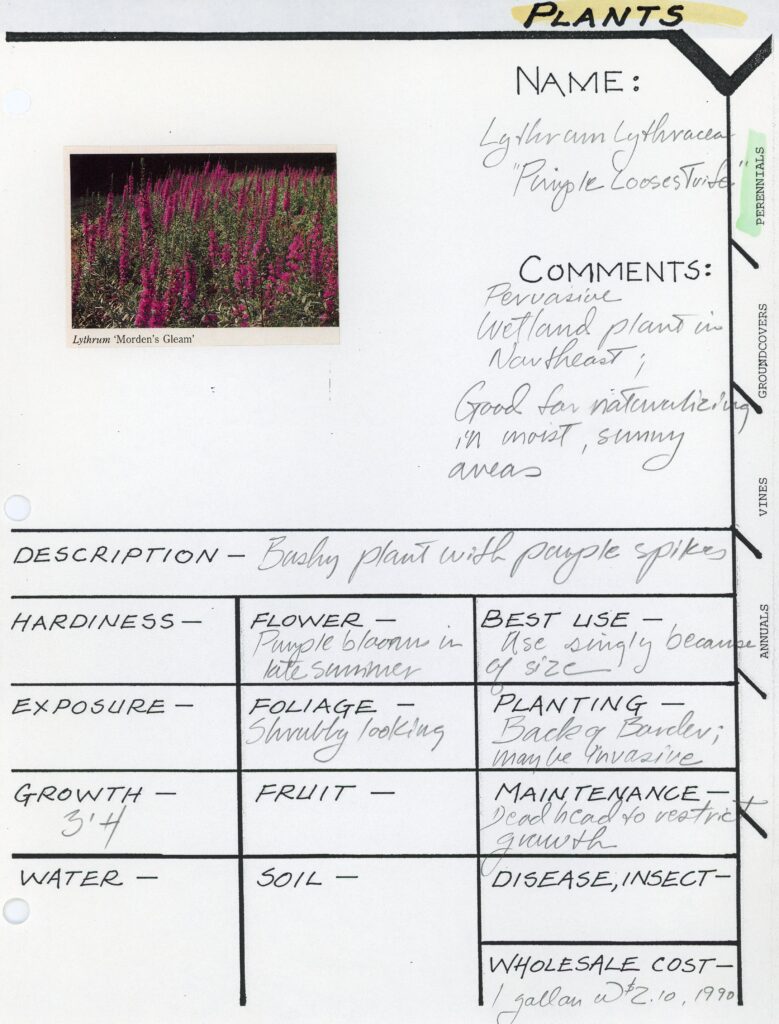 PLANTS
NAME:
Lythrum Lythracea
"Purple Loosestrife"
Lythrum 'Morden's Gleam'
COMMENTS:
Pervasive
Wetland plant in
Northeast;
Good for naturalizing
in moist, sunny
areas
PERENNIALS
GROUNDCOVERS
VINES
ANNUALS
DESCRIPTION — Bushy plant with purple spikes
HARDINESS —
FLOWER —
Purple blooms in
late summer
BEST USE —
Use singly because
of size
EXPOSURE —
FOLIAGE —
Shrubby looking
PLANTING —
Back of Border;
maybe invasive
GROWTH —
3'H
FRUIT —
MAINTENANCE —
Dead head to restrict
growth
WATER —
SOIL —
DISEASE, INSECT —
WHOLESALE COST —
1 gallon @ $2.10, 1990